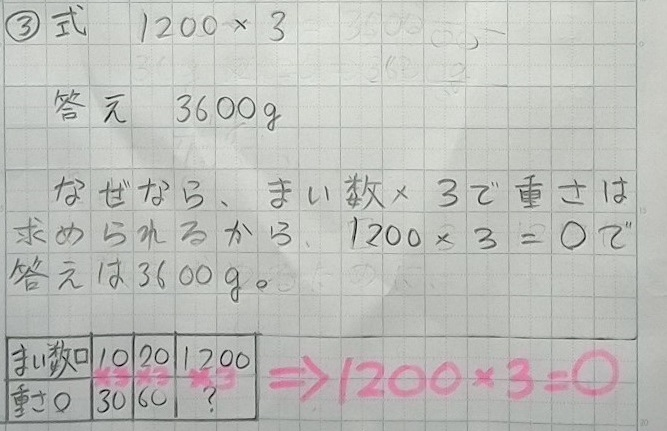 ③ 式 1200×3
答え 3600g
なぜなら、まい数×3で重さは
求められるから、1200×3=○で
答えは3600g。
まい数□ 10 20 1200
×3 ×3 ×3 ⇒1200×3=○
重さ○ 30 60 ?